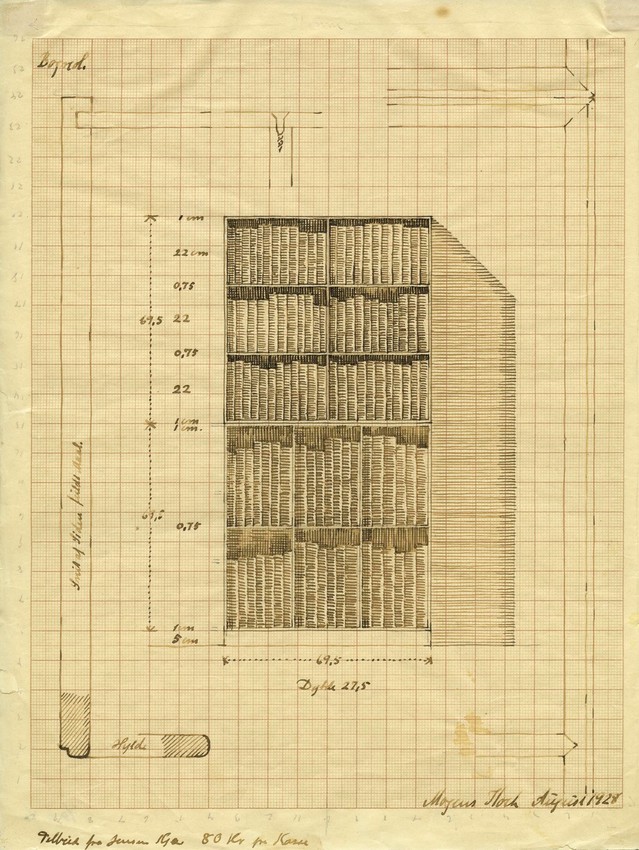 Bogreol.
1 cm
22 cm
0,75
69,5
22
0,75
22
1 cm
1 cm.
69,5
0,75
1 cm
5 cm
69,5
Dybde 27,5
Snit af Siden fuld
Hylde
Mogens Koch August 1928
Tilbud fra Jensen Kjær 80 Kr pr Kasse